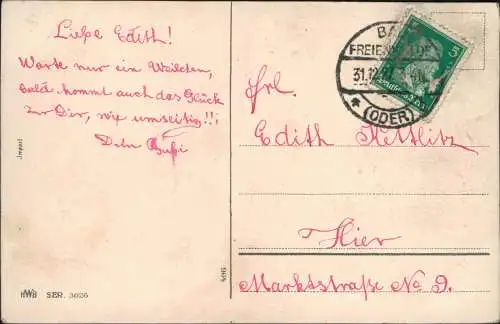 Liebe Edith!
Warte nur ein Weilchen,
bald kommt auch das Glück
zu Dir, wie umseitig!!!
Dein
Import
HWB SER. 3026
496
BAD
FREIENWALDE
31.12.
(ODER)
5
Frl.
Edith Mettlitz
Hier
Marktstraße No 9.